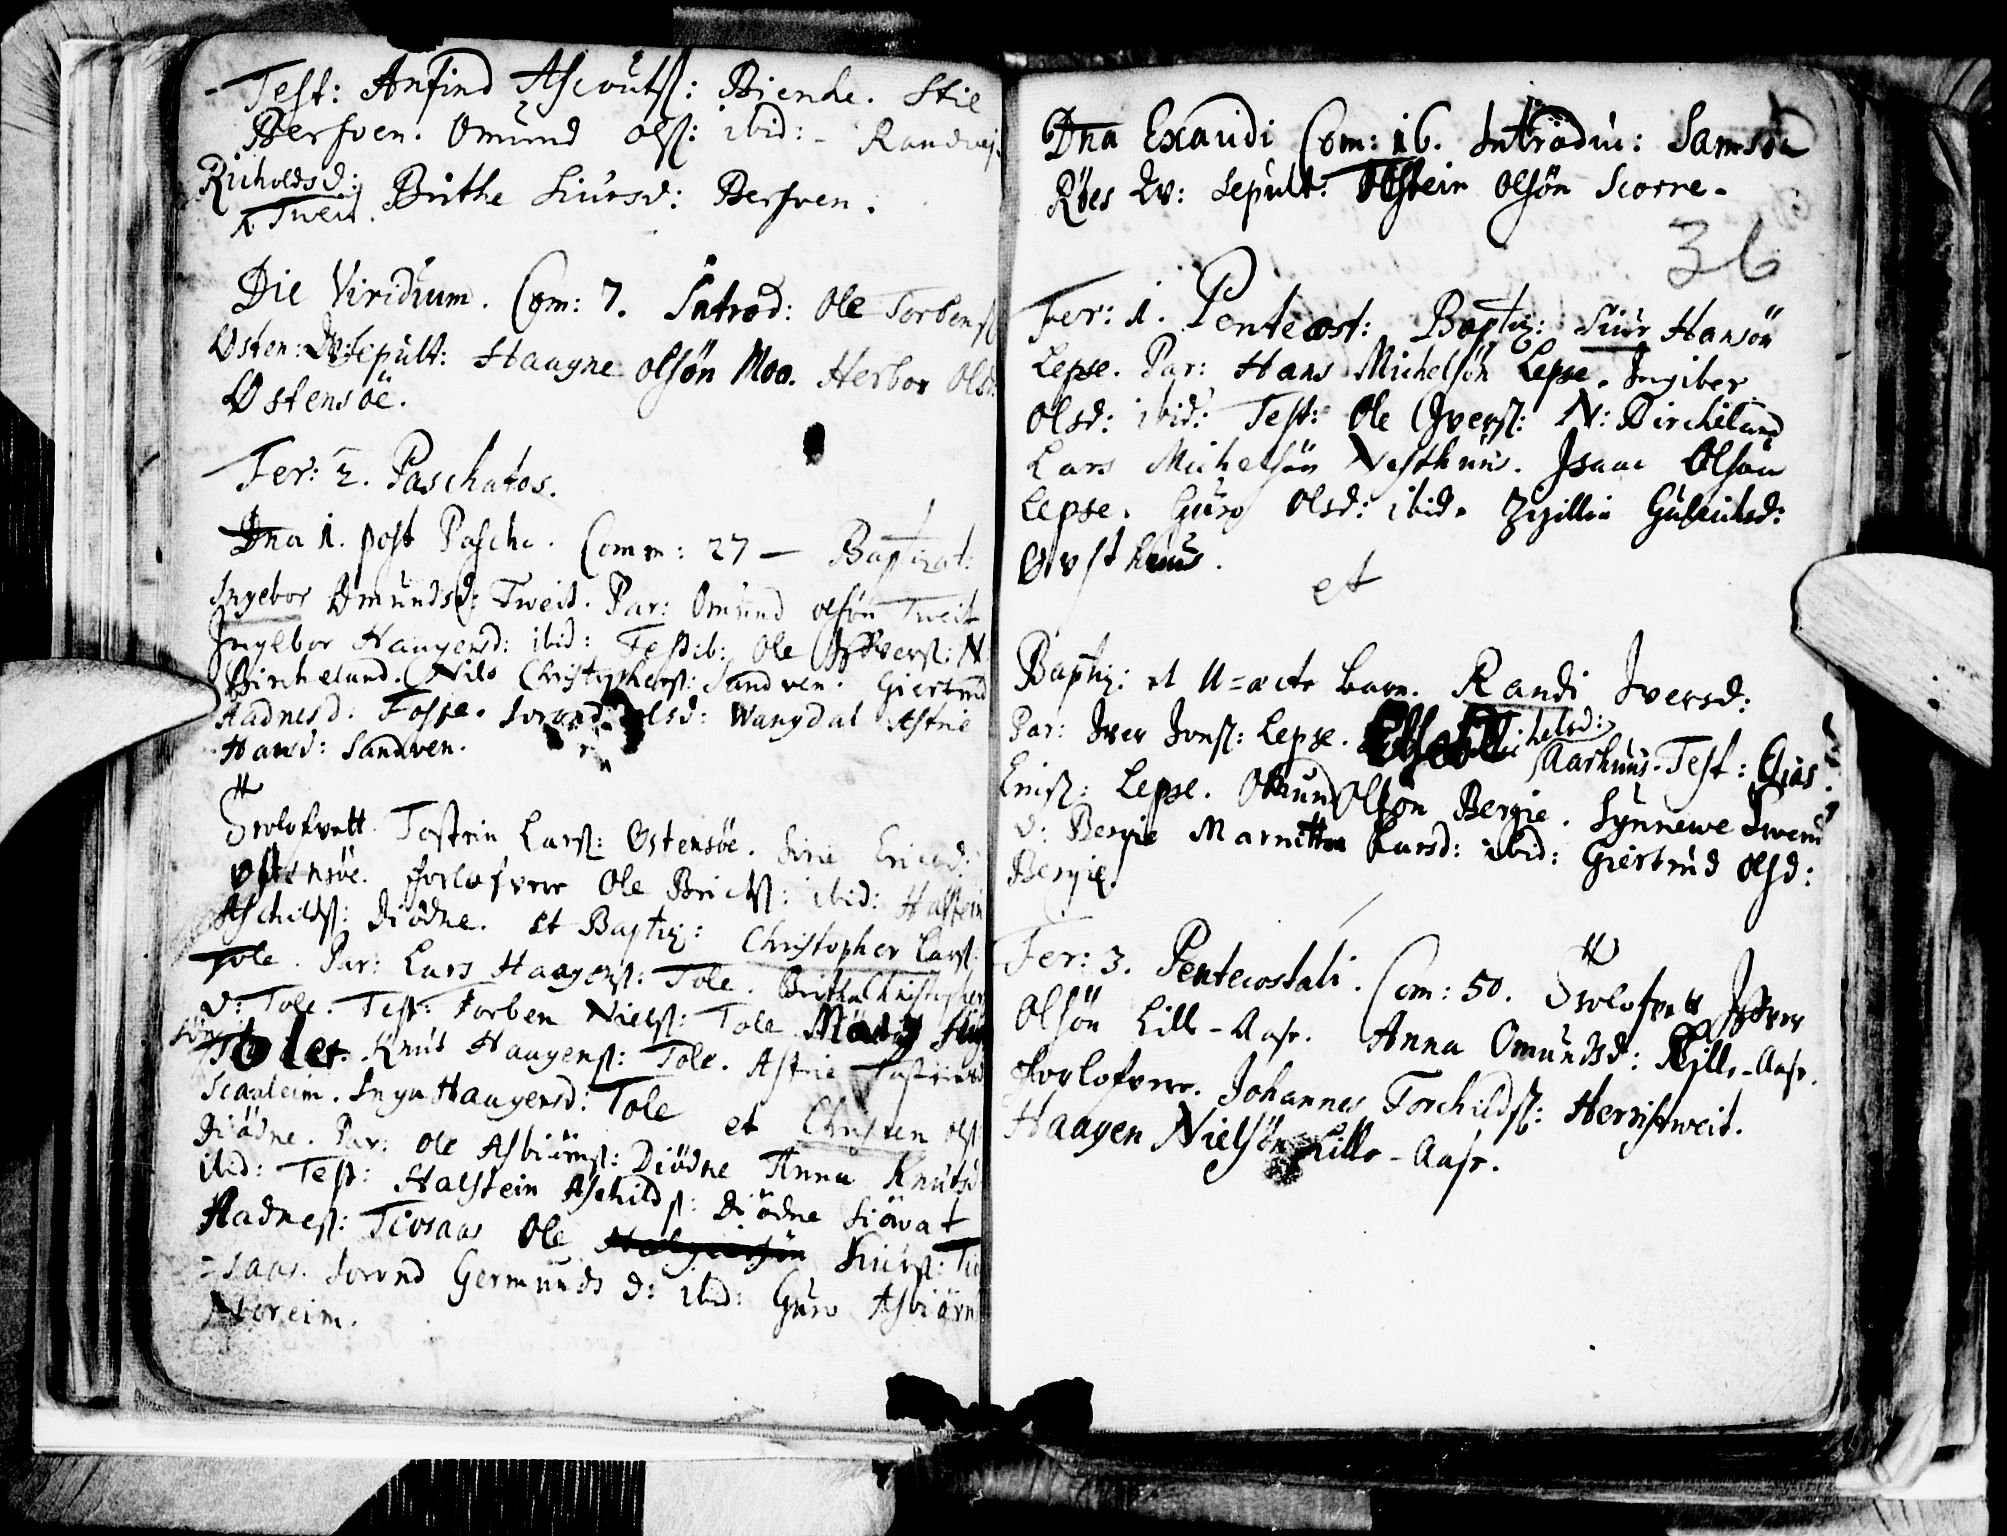 Test: Anfind Ascoutß: Bienhe. Stil
Berfven. Omund olß: ibid: - Randvei
Richoldsd: Brithe Siursd: Berfven.
Tweit.
Die Viridium. Com: 7. Introd: Ole Torbenß
Østen: Sepult: Haagne olsøn Moo. Herbor Olsd:
Østensøe.
Fer: 2. Paschatos.
Dna 1. post Pasche. Comm: 27 — Baptizat:
Ingebor Omundsd: Tweit. Par: Omund olsøn Tweit
Ingebor Haagensd: ibid: Testib: Ole Iverß: N
Bircheland. Nils Christopherß: Sandven. Giertrud
Aadnesd. Fosse. Torond olsd: Wangdal Astrie
Hansd: Sandven.
Trolofvett. Tostein Larß: Østensøe. Sirie Ericsd:
Østensøe. Forlofvere Ole Erichß: ibid: Halstein
Aschildß: Diødne. et Baptiz: Christopher Larß:
Tole. Par: Lars Haagenß: Tole. Britha Christopher
d: Tole. Test: Torben Nielß: Tole
søn Tole. Knut Haagenß: Tole. Astrie Tosteinsd
Scaaleim. Inga Haagensd: Tole et Christen olß
Diødne. Par: Ole Asbiørnß: Diødne Anna Knutsd
ibid: Test: Halstein Aschildß: Diødne Siovat
Aadneß: Tiosaas Ole Siurß: Tio
=saas. Torond Germunds d: ibid: Guro Asbiørn
Noreim.
Dna Exaudi Com: 16. Introdu: Samson
Røes Qv: Sepult: Olstein Olsøn Scorre-
36
Fer: 1. Pentecost: Baptiz: Siur Hansøn
Lepse. Par: Hans Michelsøn Lepse. Ingiber
Olsd: ibid: Test: Ole Iverß: N: Bircheland
Lars Michelsøn Nesthuus. Isaac Olsøn
Lepse. Guro Olsd: ibid. Zizillia Gulichsd:
Øvsthuus.
et
Baptiz: et U=ecte barn. Randi Iversd:
Par: Iver Ionß: Lepse. Michelsd:
Aarhuus. Test: Elias
Erichß: Lepse. Omund Olsøn Bergie. Synnewe Swend
d: Bergie Marritte Larsd: ibid: Giertrud Olsd:
Bergie.
Fer: 3. Pentecostali. Com: 50. Trolofvett Iver
Olsøn Lille-Aase. Anna Omundsd: Lille-Aase.
Forlofvere. Johannes Torchildß: Herristweit.
Haagen Nielsøn Lille-Aase.